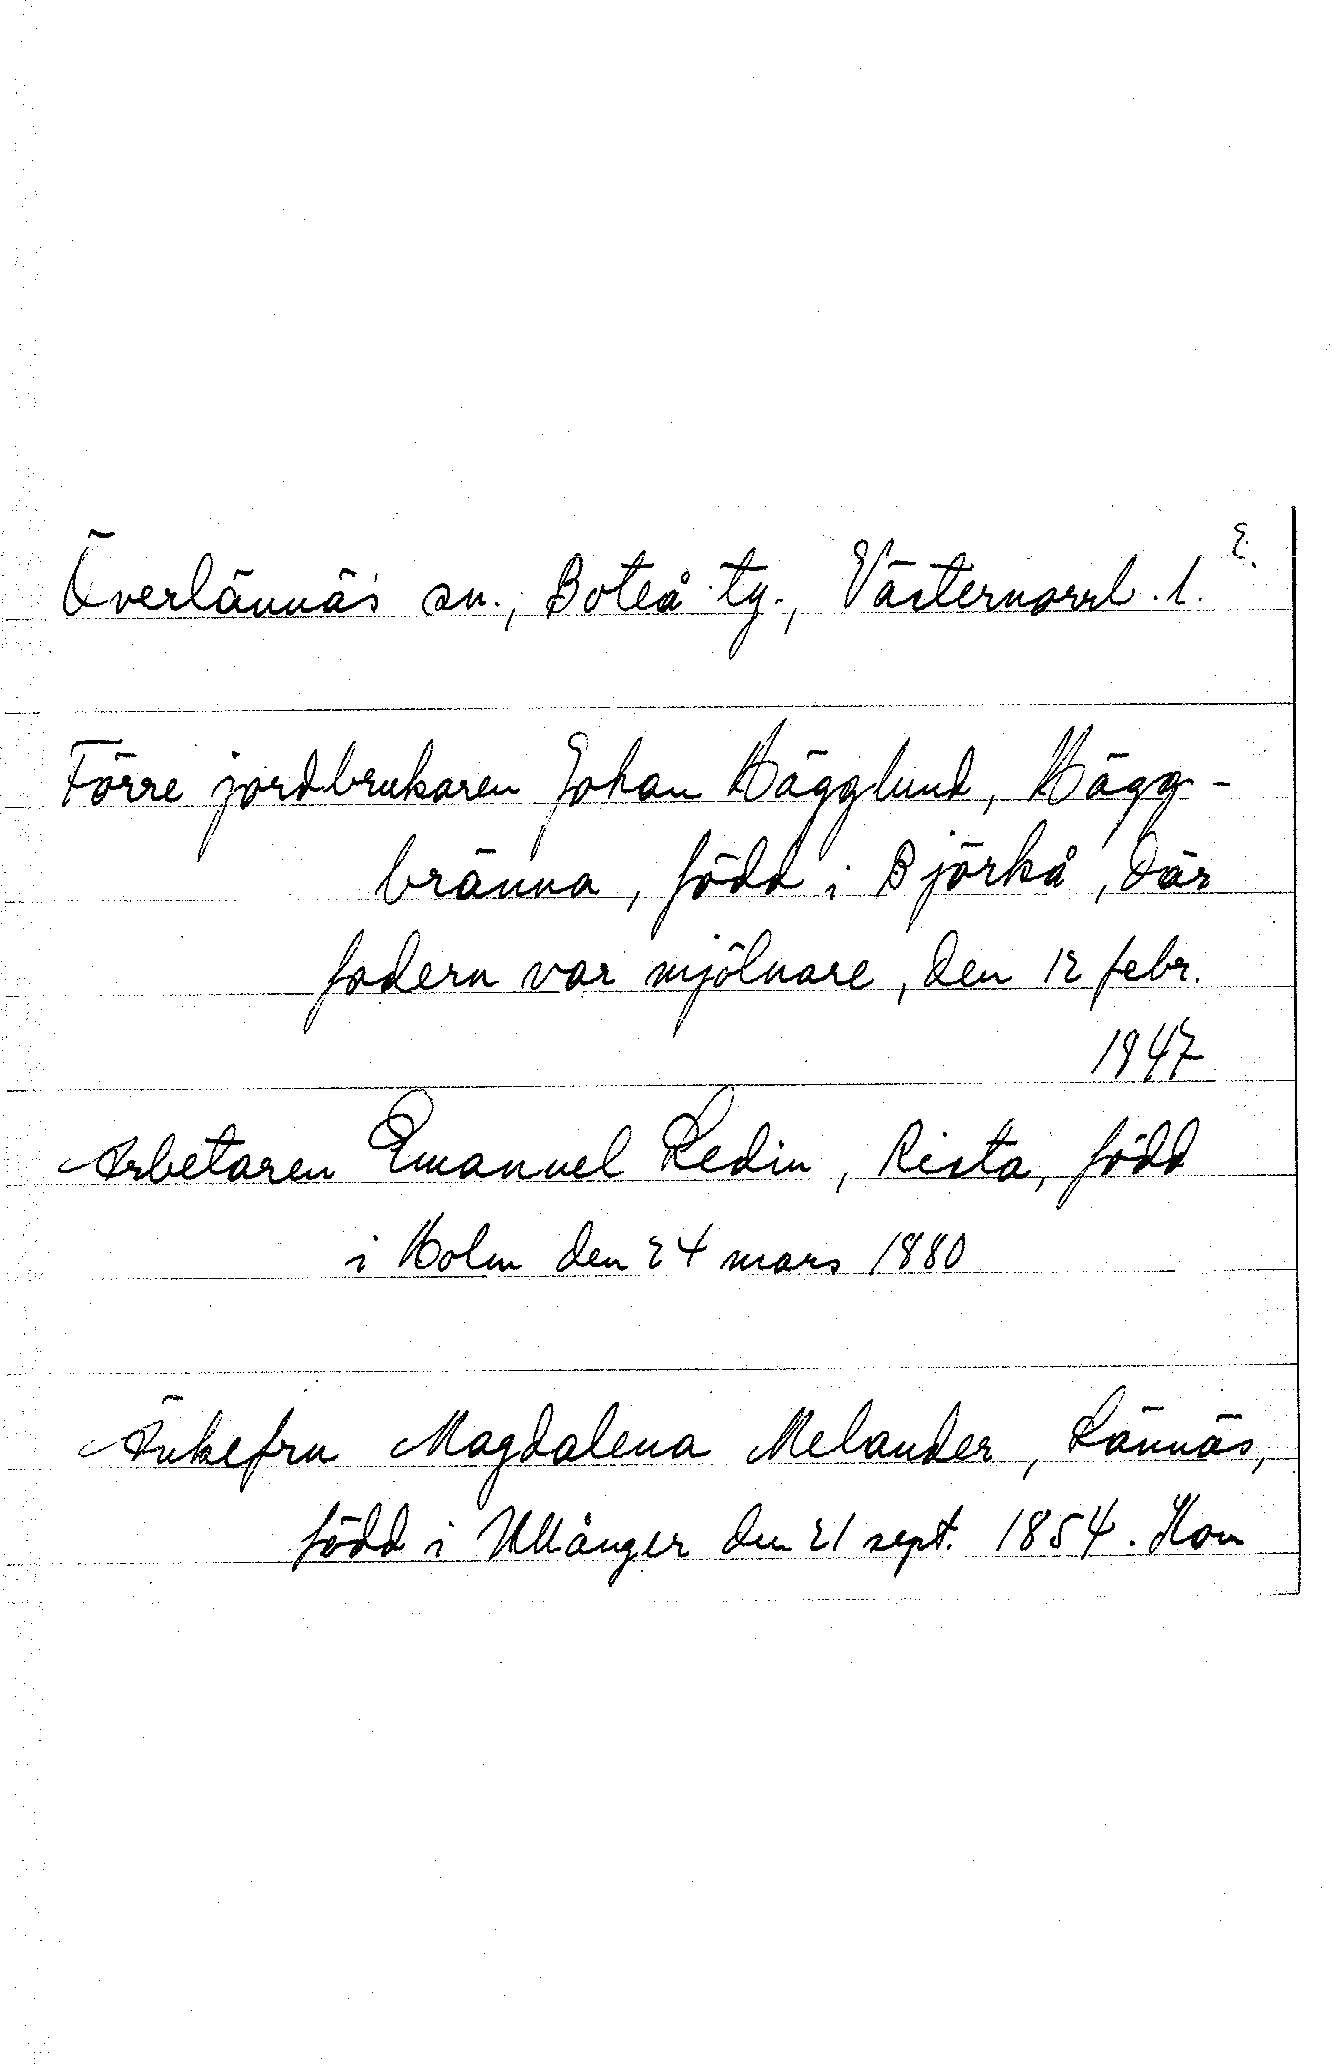 2.
Överlännäs sn., Boteå tg., Västernorrl. l.
Förre jordbrukaren Johan Hägglund, Hägg-
bränna, född i Björkå, där
fadern var mjölnare, den 12 febr.
1847
Arbetaren Emanuel Ledin, Rista, född
i Holm den 24 mars 1880
Änkefru Magdalena Melander, Lännäs,
född i Ullånger den 21 sept. 1854. Hon